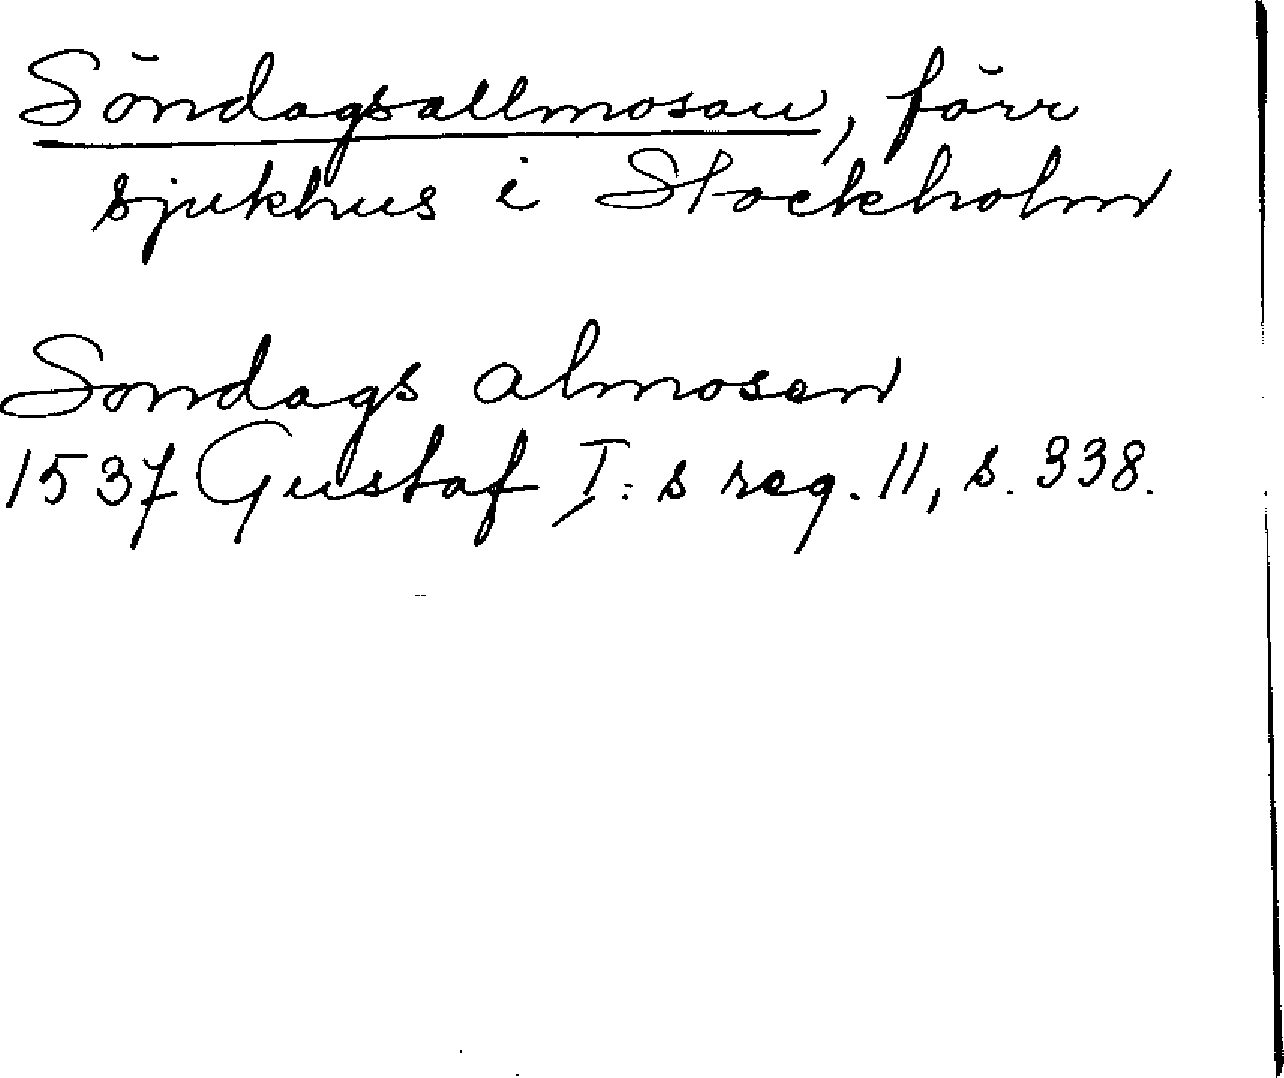 Söndagsallmosan, förr
sjukhus i Stockholm
Sondags almosen
1537 Gustaf I:s reg. 11, s. 338.